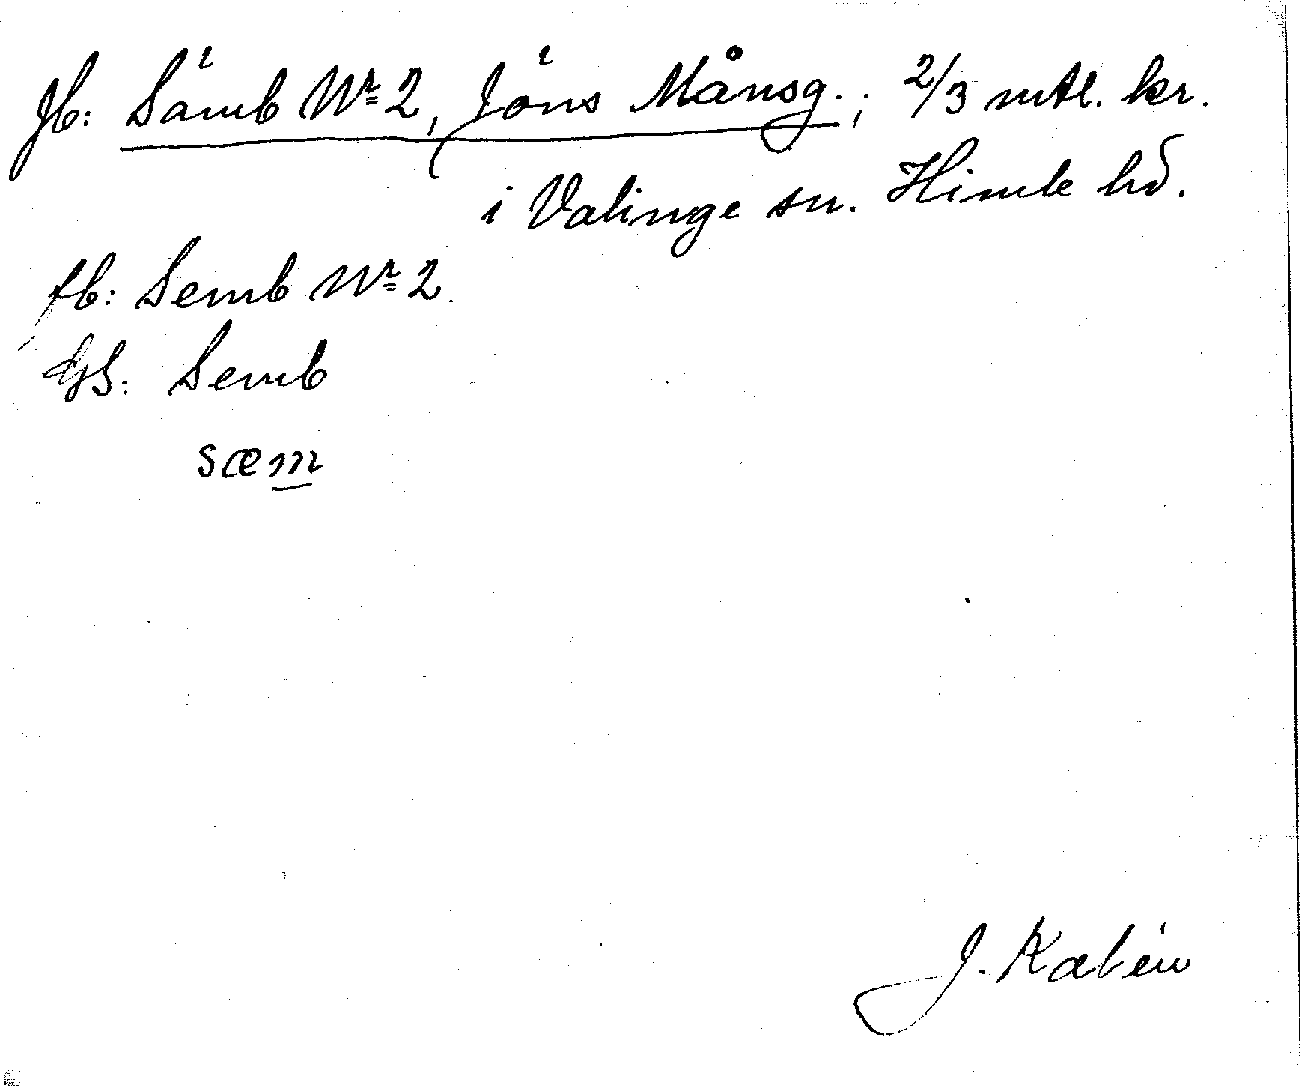 Jb: Sämb Nr 2, Jöns Månsg.; 2/3 mtl. kr.
i Valinge sn. Himle hd.
fb: Semb Nr 2
GS: Semb
sæm
J. Kalén